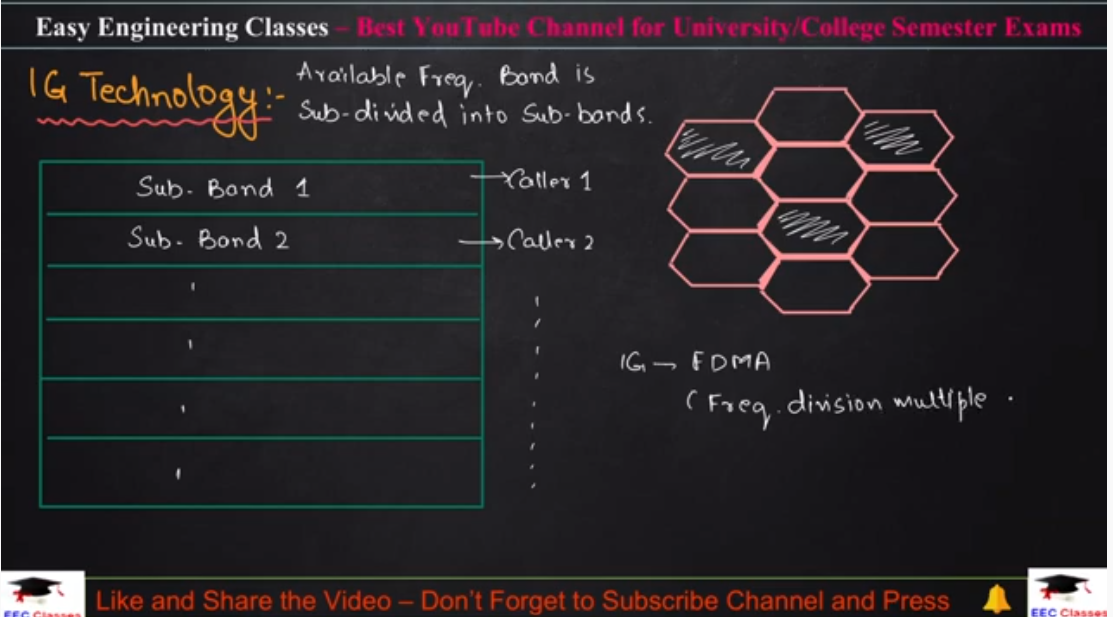 Easy Engineering Classes – Best YouTube Channel for University/College Semester Exams
1G Technology:-
Available Freq. Band is
Sub-divided into Sub-bands.
Sub-Band 1 → Caller 1
Sub-Band 2 → Caller 2
1G → FDMA
(Freq. division multiple
Like and Share the Video – Don't Forget to Subscribe Channel and Press
EEC Classes
EEC Classes